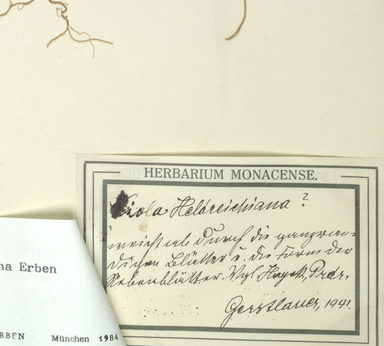 HERBARIUM MONACENSE.
Viola Helreichiana ?
weicht ab durch die ganzran-
digen Blätter u. die Form der
Nebenblätter. Vgl. Hayek, Prdr.
Gerstlauer, 1941.
na Erben
RBEN München 1984